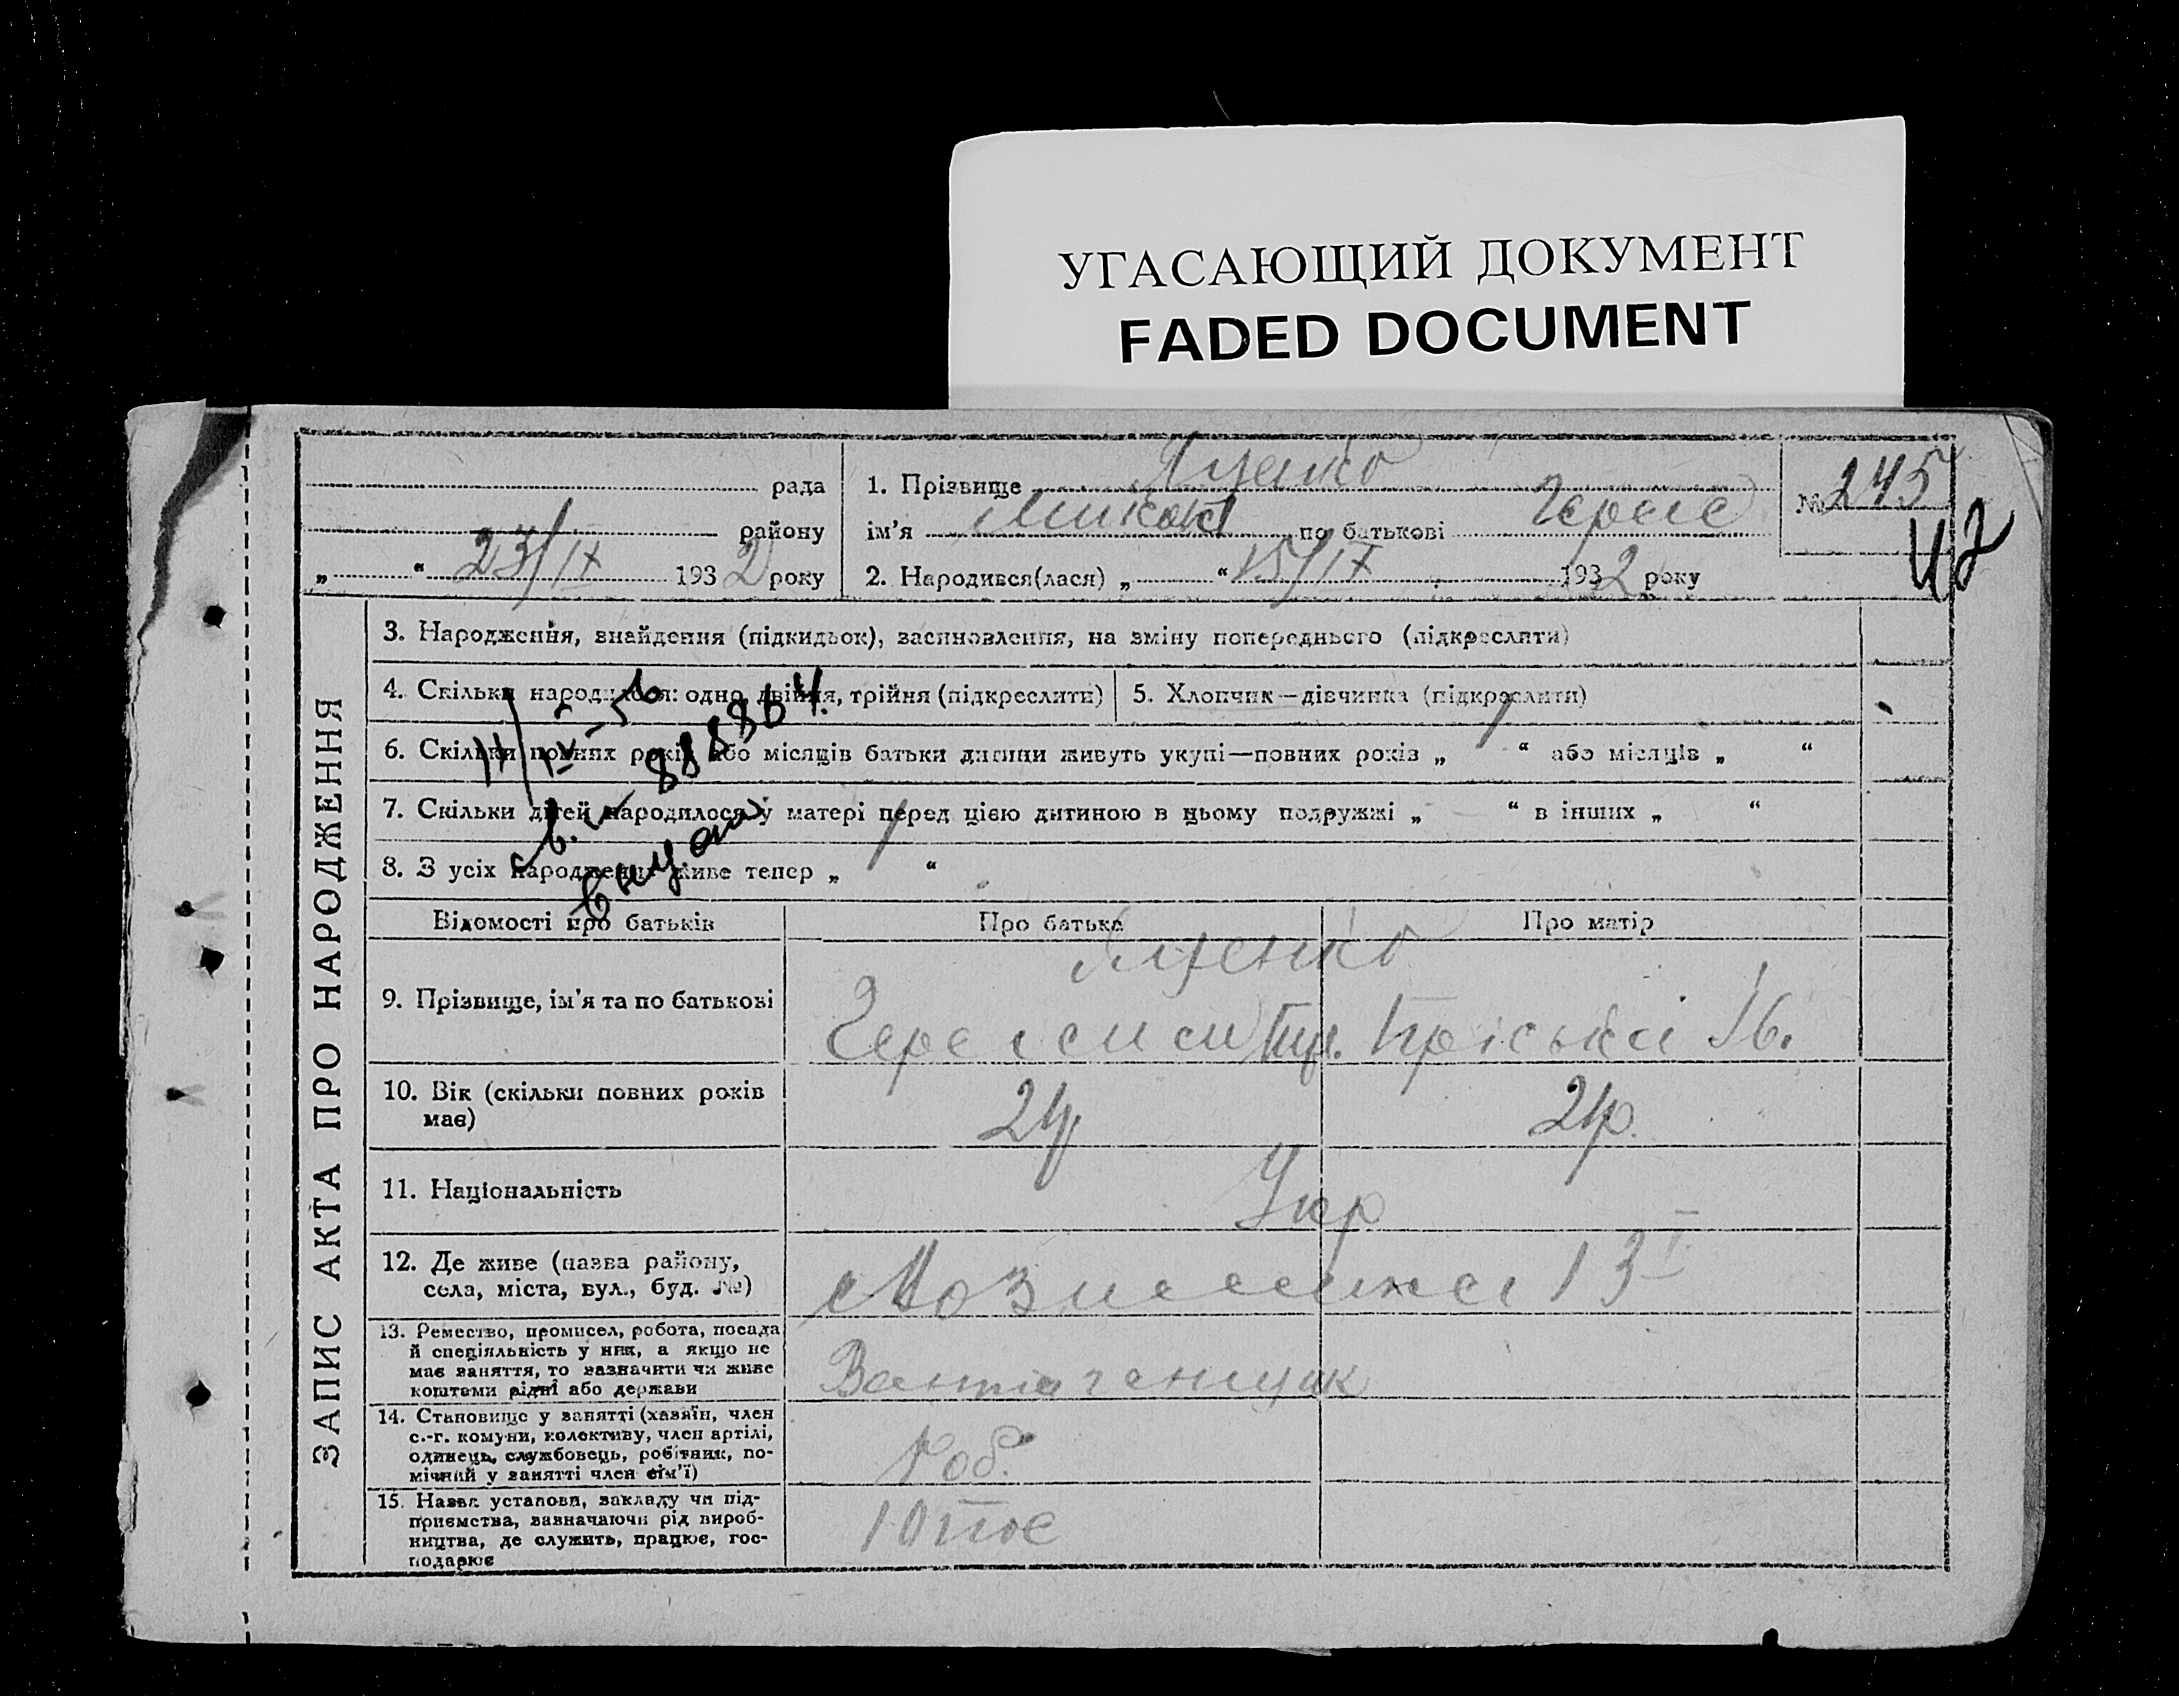 УГАСАЮЩИЙ ДОКУМЕНТ
FADED DOCUMENT
рада
району
„ “ 23/IX 1932 року
1. Прізвище Яценко
ім’я Микола по батькові
2. Народився(лася) „ “ 15/IX 1932 року
№ 245
42
ЗАПИС АКТА ПРО НАРОДЖЕННЯ
3. Народження, знайдення (підкидьок), засиновлення, на зміну попереднього (підкреслити)
4. Скільки народилося: одно, двійня, трійня (підкреслити)
5. Хлопчик—дівчинка (підкреслити)
6. Скільки повних років або місяців батьки дитини живуть укупі—повних років „ 1 “ або місяців „ “
7. Скільки дітей народилося у матері перед цією дитиною в цьому подружжі „ — “ в інших „ “
8. З усіх народжених живе тепер „ 1 “
Відомості про батьків
Про батька
Про матір
9. Прізвище, ім’я та по батькові
Яценко
10. Вік (скільки повних років
має)
24р.
24р.
11. Національність
Укр
12. Де живе (назва району,
села, міста, вул., буд. №)
13
13. Ремество, промисел, робота, посада
й спеціяльність у них, а якщо не
має заняття, то зазначити чи живе
коштами рідні або держави
14. Становище у занятті (хазяїн, член
с.-г. комуни, колективу, член артілі,
одинець, службовець, робітник, по-
мічний у занятті член сім’ї)
Роб.
15. Назва установи, закладу чи під-
приємства, зазначаючи рід вироб-
ництва, де служить, працює, гос-
подарює